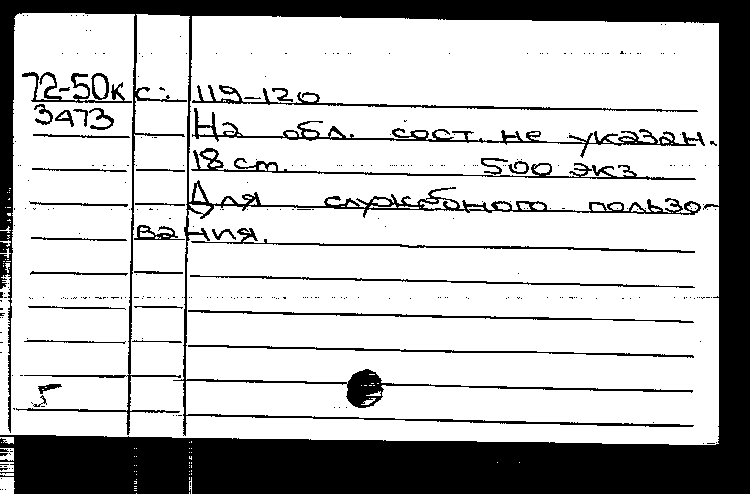 72-50к с: 119-120
3473 На обл. сост. не указан.
18 cm. 500 экз
Для служебного пользо-
вания.
5